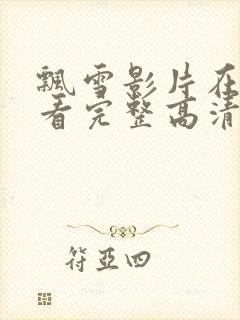 飘雪影片在
看完整高清
符亞四